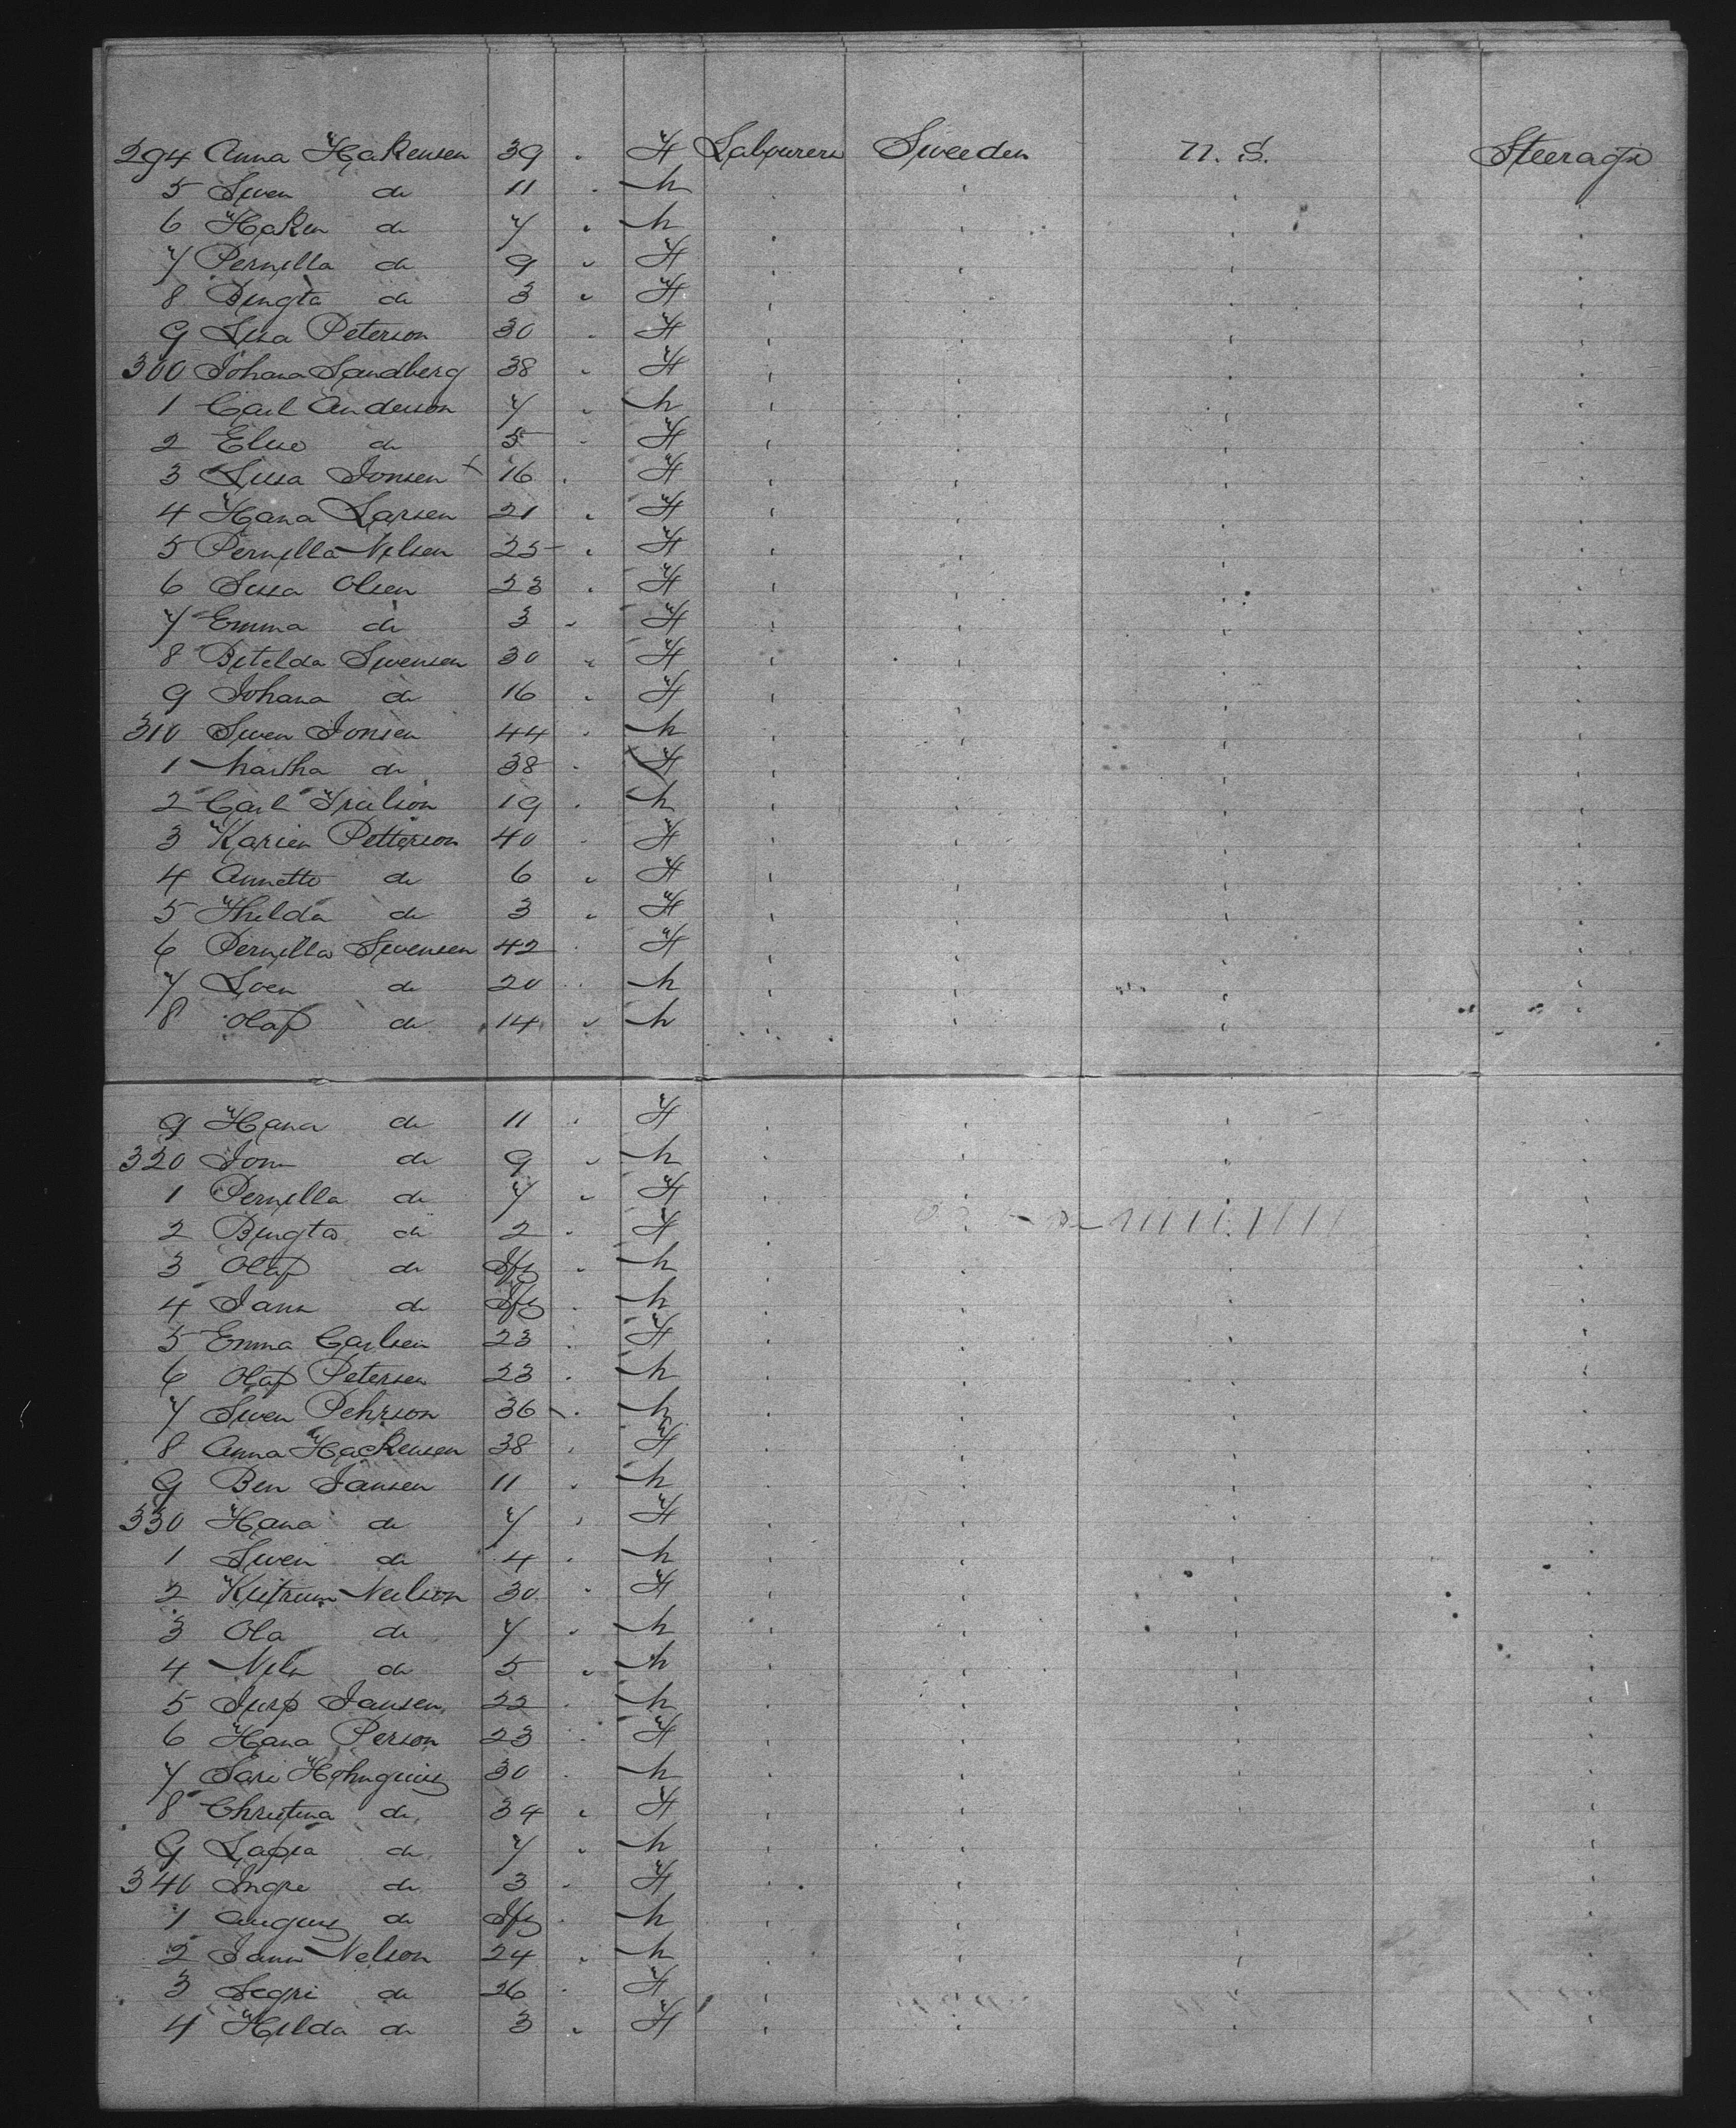 294 Anna Hakensen 39 " F Labourers Sweeden U. S. Steerage
5 Swen do 11 " M
6 Haken do 7 " M
7 Pernilla do 9 " F
8 Bingta do 3 " F
9 Lisa Peterson 30 " F
300 Johana Sandberg 38 " F
1 Carl Anderson 7 " M
2 Elise do 5 " F
3 Lisa Jonsen + 16 " F
4 Hana Larsen 21 " F
5 Pernilla Nilsen 25 " F
6 Sissa Olsen 23 " F
7 Emma do 3 " F
8 Betelda Swensen 30 " F
9 Johana do 16 " F
310 Swen Jonsen 44 " M
1 Martha do 38 " F
2 Carl 19 " M
3 Karien Petterson 40 " F
4 Annette do 6 " F
5 Hhilda do 3 " F
6 Pernilla Swensen 42 " F
7 do 20 " M
8 Olaf do 14 " M
9 Hana do 11 " F
320 Jom do 9 " M
1 Pernilla do 7 " F
2 Bingta do 2 " F
3 Olaf do Inf " M
4 Jann do Inf " M
5 Emma Carlsen 23 " F
6 Olaf Petersen 23 " M
7 Swen Pehrson 36 " M
8 Anna Hackensen 38 " F
9 Ben Jansen 11 " M
330 Hana do 7 " F
1 Swen do 4 " M
2 Neilson 30 " F
3 Ola do 7 " M
4 Nils do 5 " M
5 Jansen 22 " M
6 Hana Person 23 " F
7 30 " M
8 Christina do 34 " F
9 do 7 " M
340 Ingre do 3 " F
1 do Inf " M
2 Jann Nelson 24 " M
3 Segri do 26 " F
4 Hilda do 3 " F